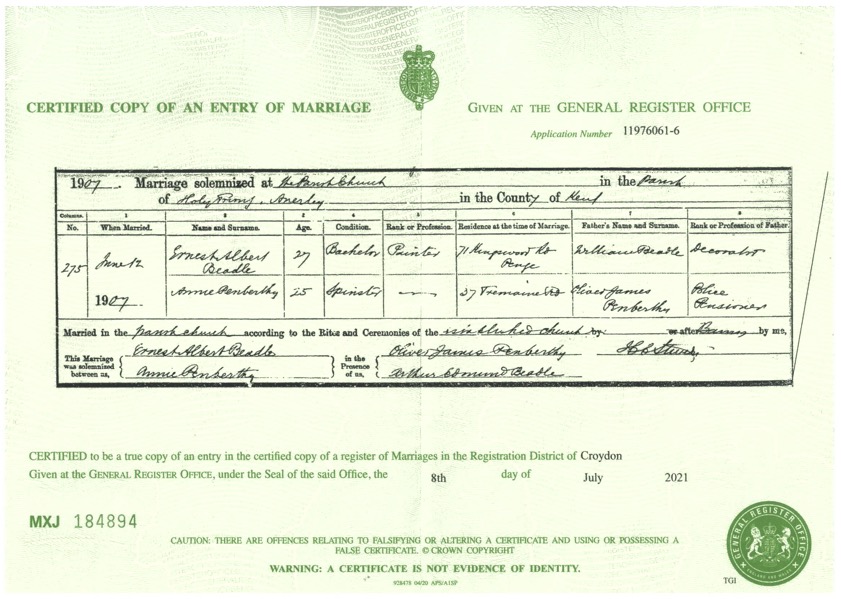 CERTIFIED COPY OF AN ENTRY OF MARRIAGE
GIVEN AT THE GENERAL REGISTER OFFICE
Application Number 11976061-6
1907. Marriage solemnized at the Parish Church in the Parish
of Holy Trinity, Anerley in the County of Kent
Columns. 1 2 3 4 5 6 7 8
No. When Married. Name and Surname. Age. Condition. Rank or Profession. Residence at the time of Marriage. Father's Name and Surname. Rank or Profession of Father.
275 June 12 Ernest Albert Beadle 27 Bachelor Painter 71 Kingswood Rd Penge William Beadle Decorator
1907. Annie Penberthy 25 Spinster — 37 Tremaine Rd Oliver James Penberthy Police Pensioner
Married in the parish church according to the Rites and Ceremonies of the Established church by: or after Banns by me,
This Marriage was solemnized between us, Ernest Albert Beadle Annie Penberthy in the Presence of us, Oliver James Penberthy Arthur Edmund Beadle
CERTIFIED to be a true copy of an entry in the certified copy of a register of Marriages in the Registration District of Croydon
Given at the GENERAL REGISTER OFFICE, under the Seal of the said Office, the 8th day of July 2021
MXJ 184894
CAUTION: THERE ARE OFFENCES RELATING TO FALSIFYING OR ALTERING A CERTIFICATE AND USING OR POSSESSING A
FALSE CERTIFICATE. © CROWN COPYRIGHT
WARNING: A CERTIFICATE IS NOT EVIDENCE OF IDENTITY.
928478 04/20 APS/A1SP
TGI
GENERAL REGISTER OFFICE
ENGLAND AND WALES